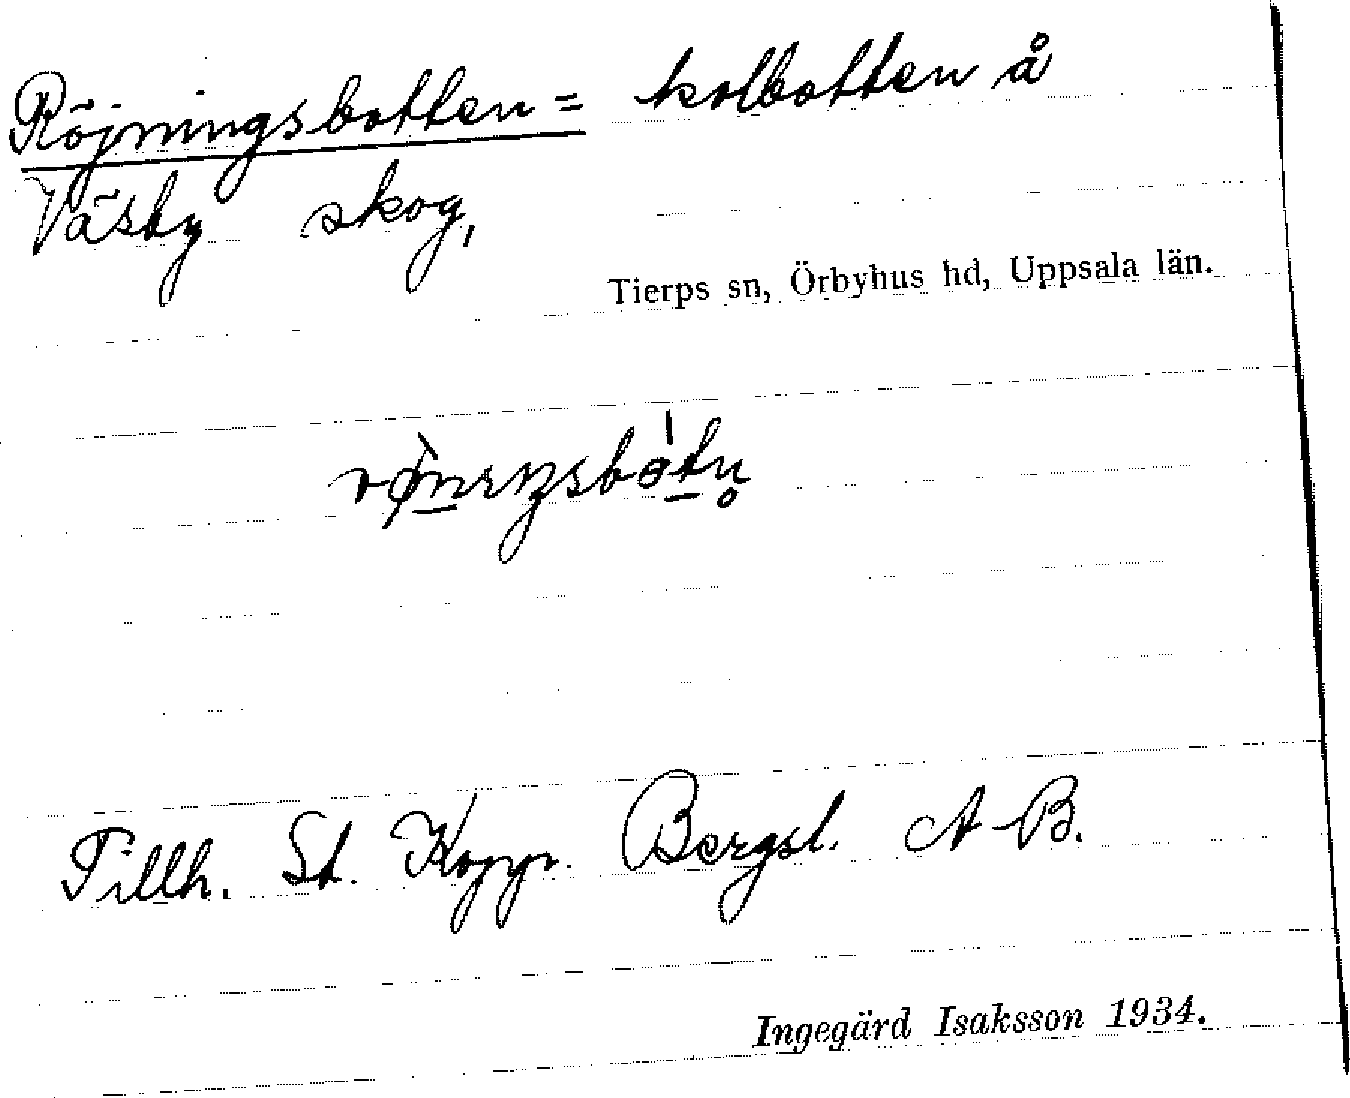 Röjningsbotten = kolbotten å
Väsby skog,
Tierps sn, Örbyhus hd, Uppsala län.
Tillh. St. Koppr. Bergsl. A-B.
Ingegärd Isaksson 1934.